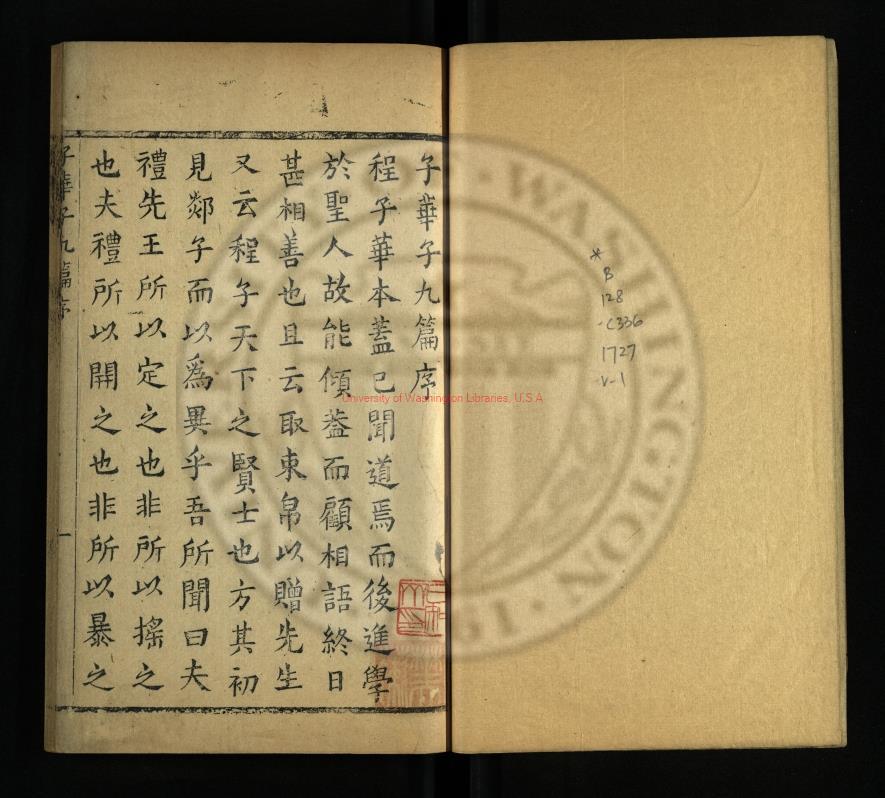 子華子九篇序
程子華本蓋已聞道焉而後進學
於聖人故能傾葢而顧相語終日
甚相善也且云取束帛以贈先生
又云程子天下之賢士也方其初
見郯子而以爲異乎吾所聞曰夫
禮先王所以定之也非所以搖之
也夫禮所以開之也非所以暴之
子華子九篇序
一
*
B
128
.C336
1727
v-1
University of Washington Libraries, U.S.A
WASHINGTON